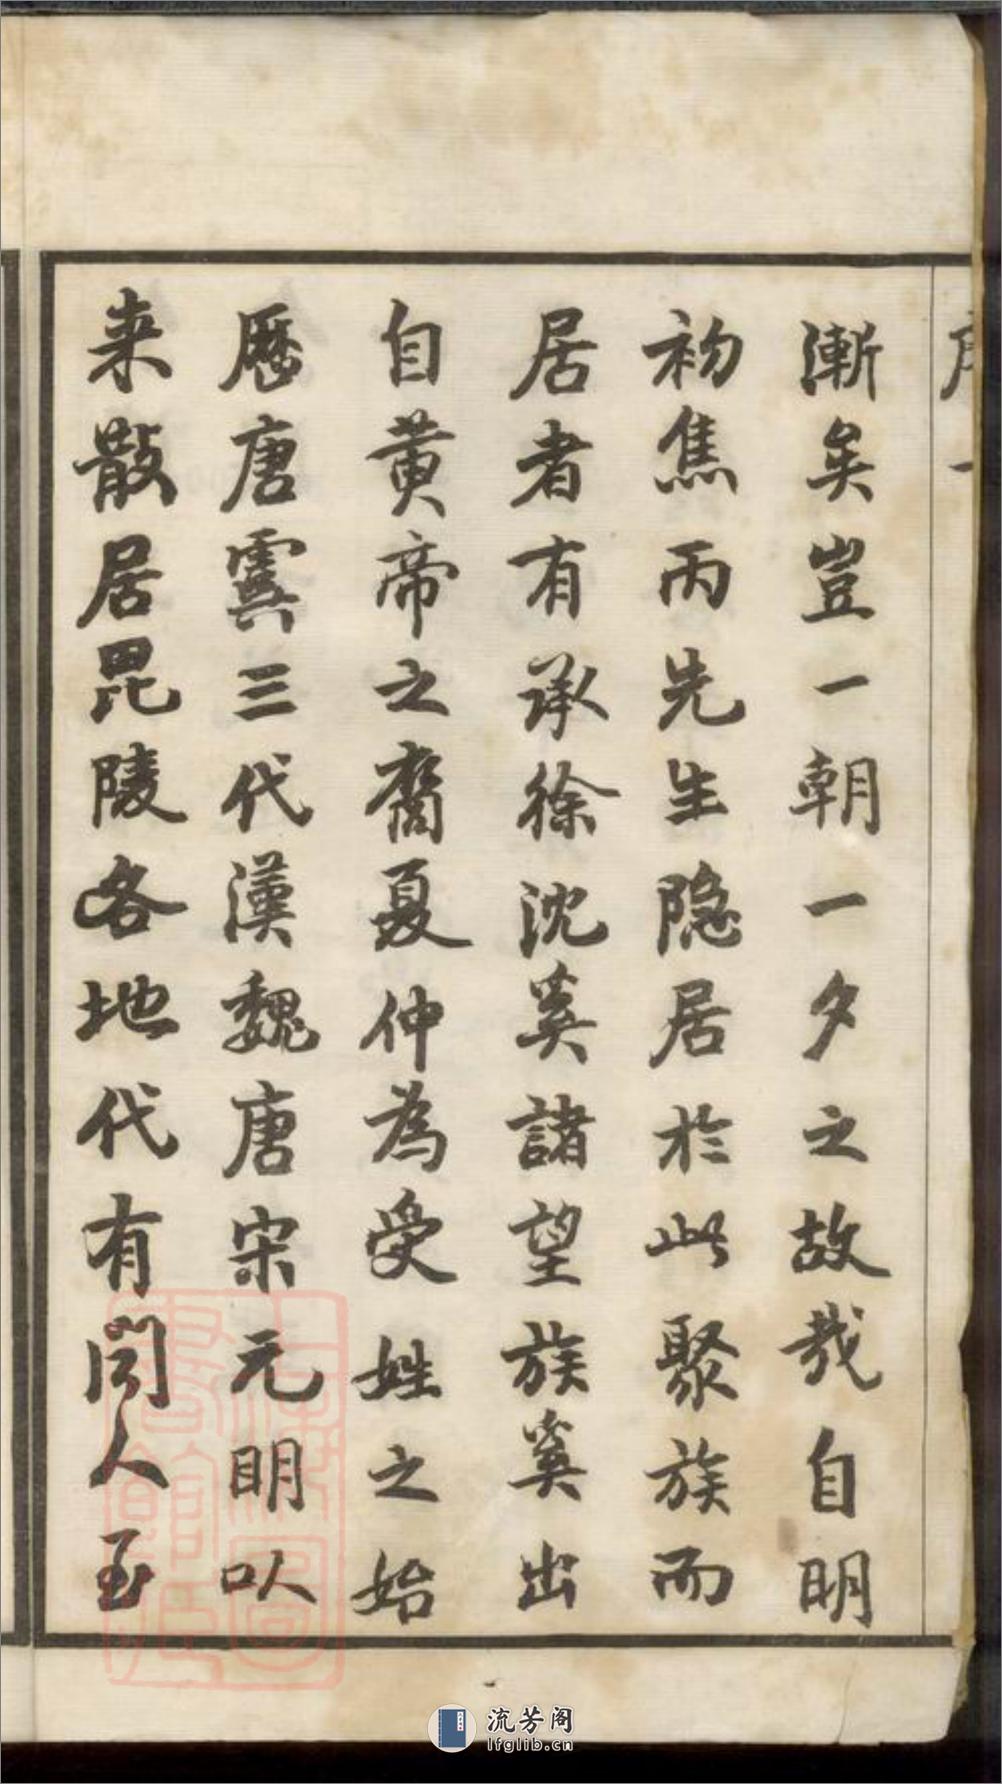 漸矣豈一朝一夕之故哉自明
初焦丙先生隐居於此聚族而
居者有承徐沈奚諸望族奚出
自黄帝之裔夏仲為受姓之始
歷唐虞三代漢魏唐宋元明以
来散居毘陵各地代有聞人至
流芳阁
lfglib.cn